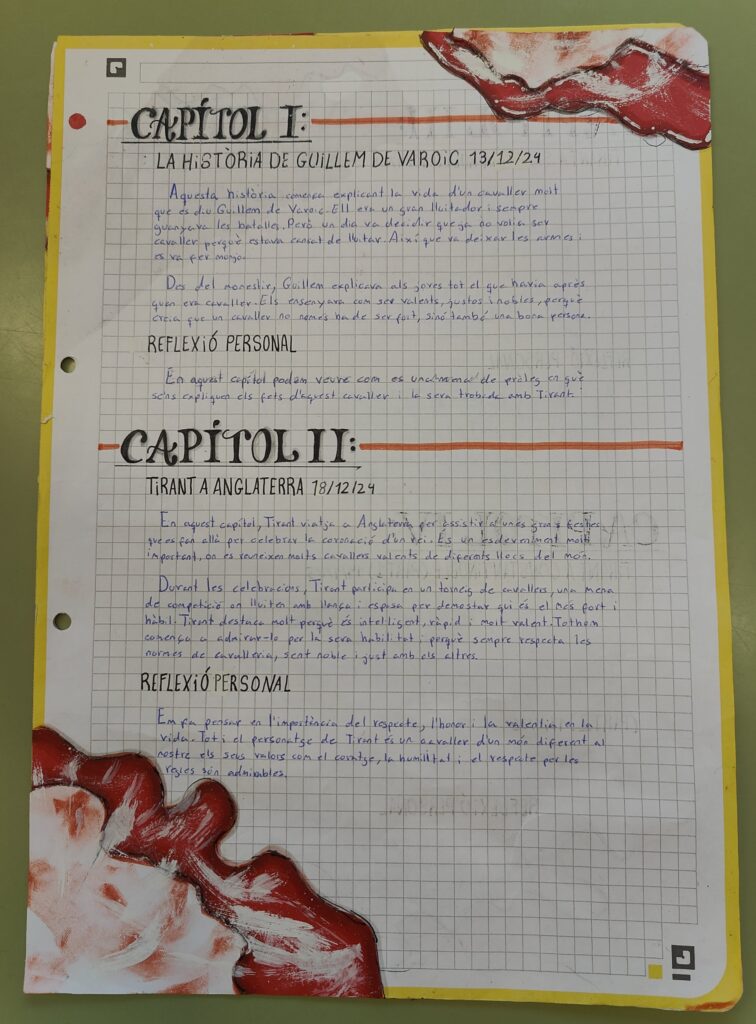 CAPÍTOL I:
LA HISTÒRIA DE GUILLEM DE VAROIC 13/12/24
Aquesta història comença explicant la vida d'un cavaller molt
que es diu Guillem de Varoic. Ell era un gran lluitador i sempre
guanyava les batalles. Però un dia va decidir que ja no volia ser
cavaller perquè estava cansat de lluitar. Així que va deixar les armes i
es va fer monjo.
Des del monestir, Guillem explicava als joves tot el que havia après
quan era cavaller. Els ensenyava com ser valents, justos i nobles, perquè
creia que un cavaller no només ha de ser fort, sinó també una bona persona.
REFLEXIÓ PERSONAL
En aquest capítol podem veure com es una mena de pròleg en què
se'ns expliquen els fets d'aquest cavaller i la seva trobada amb Tirant.
CAPÍTOL II:
TIRANT A ANGLATERRA 18/12/24
En aquest capítol, Tirant viatja a Anglaterra per assistir a unes grans festes
que es fan allà per celebrar la coronació d'un rei. És un esdeveniment molt
important, on es reuneixen molts cavallers valents de diferents llocs del món.
Durant les celebracions, Tirant participa en un torneig de cavallers, una mena
de competició on lluiten amb llança i espasa per demostar qui és el més fort i
hàbil. Tirant destaca molt perquè és intel·ligent, ràpid i molt valent. Tothom
comença a admirar-lo per la seva habilitat i perquè sempre respecta les
normes de cavalleria, sent noble i just amb els altres.
REFLEXIÓ PERSONAL
Em fa pensar en l'importància del respecte, l'honor i la valentia en la
vida. Tot i el personatge de Tirant és un cavaller d'un món diferent al
nostre els seus valors com el coratge, la humilitat i el respecte per les
regles són admirables.